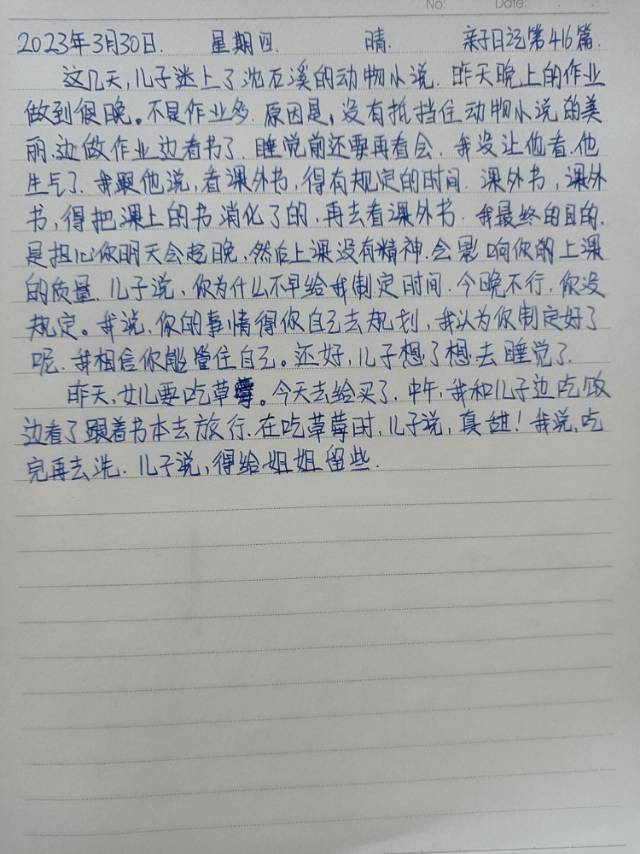 No: Date:
2023年3月30日. 星期四. 晴. 亲子日记第416篇.
这几天,儿子迷上了沈石溪的动物小说. 昨天晚上的作业
做到很晚。不是作业多. 原因是,没有抵挡住动物小说的美
丽.边做作业边看书了. 睡觉前还要再看会. 我没让他看.他
生气了. 我跟他说,看课外书,得有规定的时间. 课外书,课外
书,得把课上的书消化了的.再去看课外书. 我最终的目的.
是担心你明天会起晚,然后上课没有精神.会影响你的上课
的质量. 儿子说,你为什么不早给我制定时间.今晚不行.你没
规定。我说.你的事情得你自己去规划,我认为你制定好了
呢.我相信你能管住自己。还好,儿子想了想.去睡觉了.
昨天,女儿要吃草莓。今天去给买了.中午,我和儿子边吃饭
边看了跟着书本去旅行.在吃草莓时,儿子说,真甜!我说,吃
完再去洗. 儿子说,得给姐姐留些.